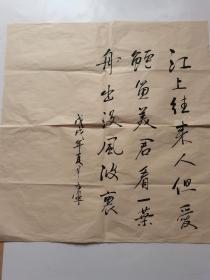 江上往来人但爱
鲈鱼美君看一葉
舟出没風波裏
戊戌年夏月